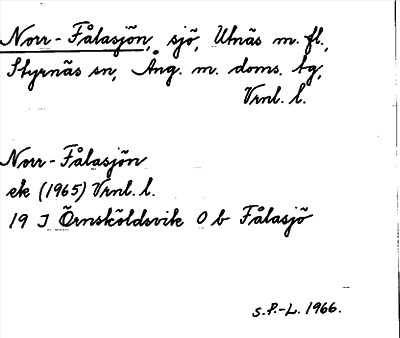 Norr-Fålasjön, sjö, Utnäs m. fl.,
Styrnäs sn, Ång. m. doms. tg,
Vrnl. l.
Norr-Fålasjön
ek (1965) Vrnl. l.
19 J Örnsköldsvik 0 b Fålasjö
S.P.-L. 1966.